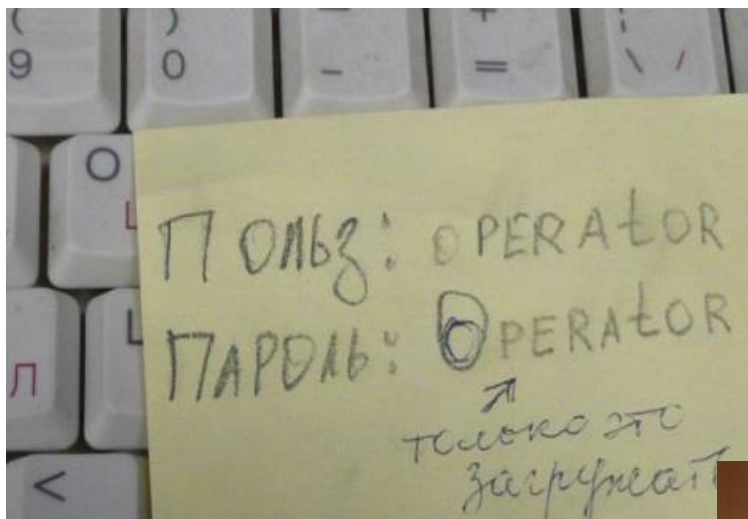 ( ) _ + |
9 0 - = \ /
О
Польз: oPERAtOR
Л
ПАРОЛЬ: OPERAtOR
только это
загружать
<